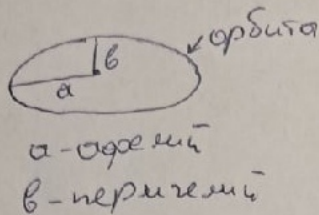 орбита
в
а
а-афелий
в-перигелий